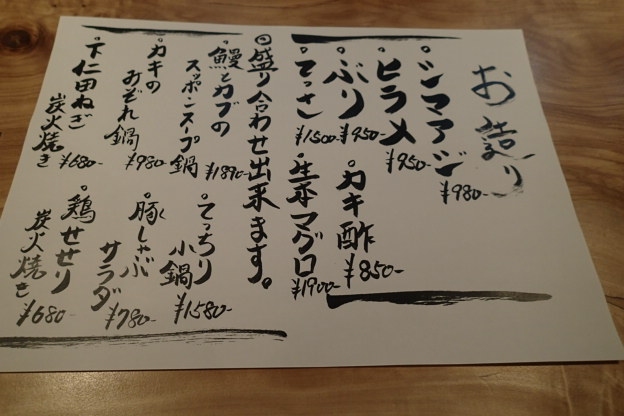 お造り
・シマアジ ¥980-
・ヒラメ ¥950-
・ぶり ¥950-
・カキ酢 ¥850-
・てっさ ¥1500-
・生本マグロ ¥1900-
◎盛り合わせ出来ます。
・鰻とカブの
スッポンスープ鍋 ¥1890-
・カキの
みぞれ鍋 ¥980-
・下仁田ねぎ
炭火焼き ¥680-
・てっちり
小鍋 ¥1580-
・豚しゃぶ
サラダ ¥780-
・鶏せせり
炭火焼き ¥680-